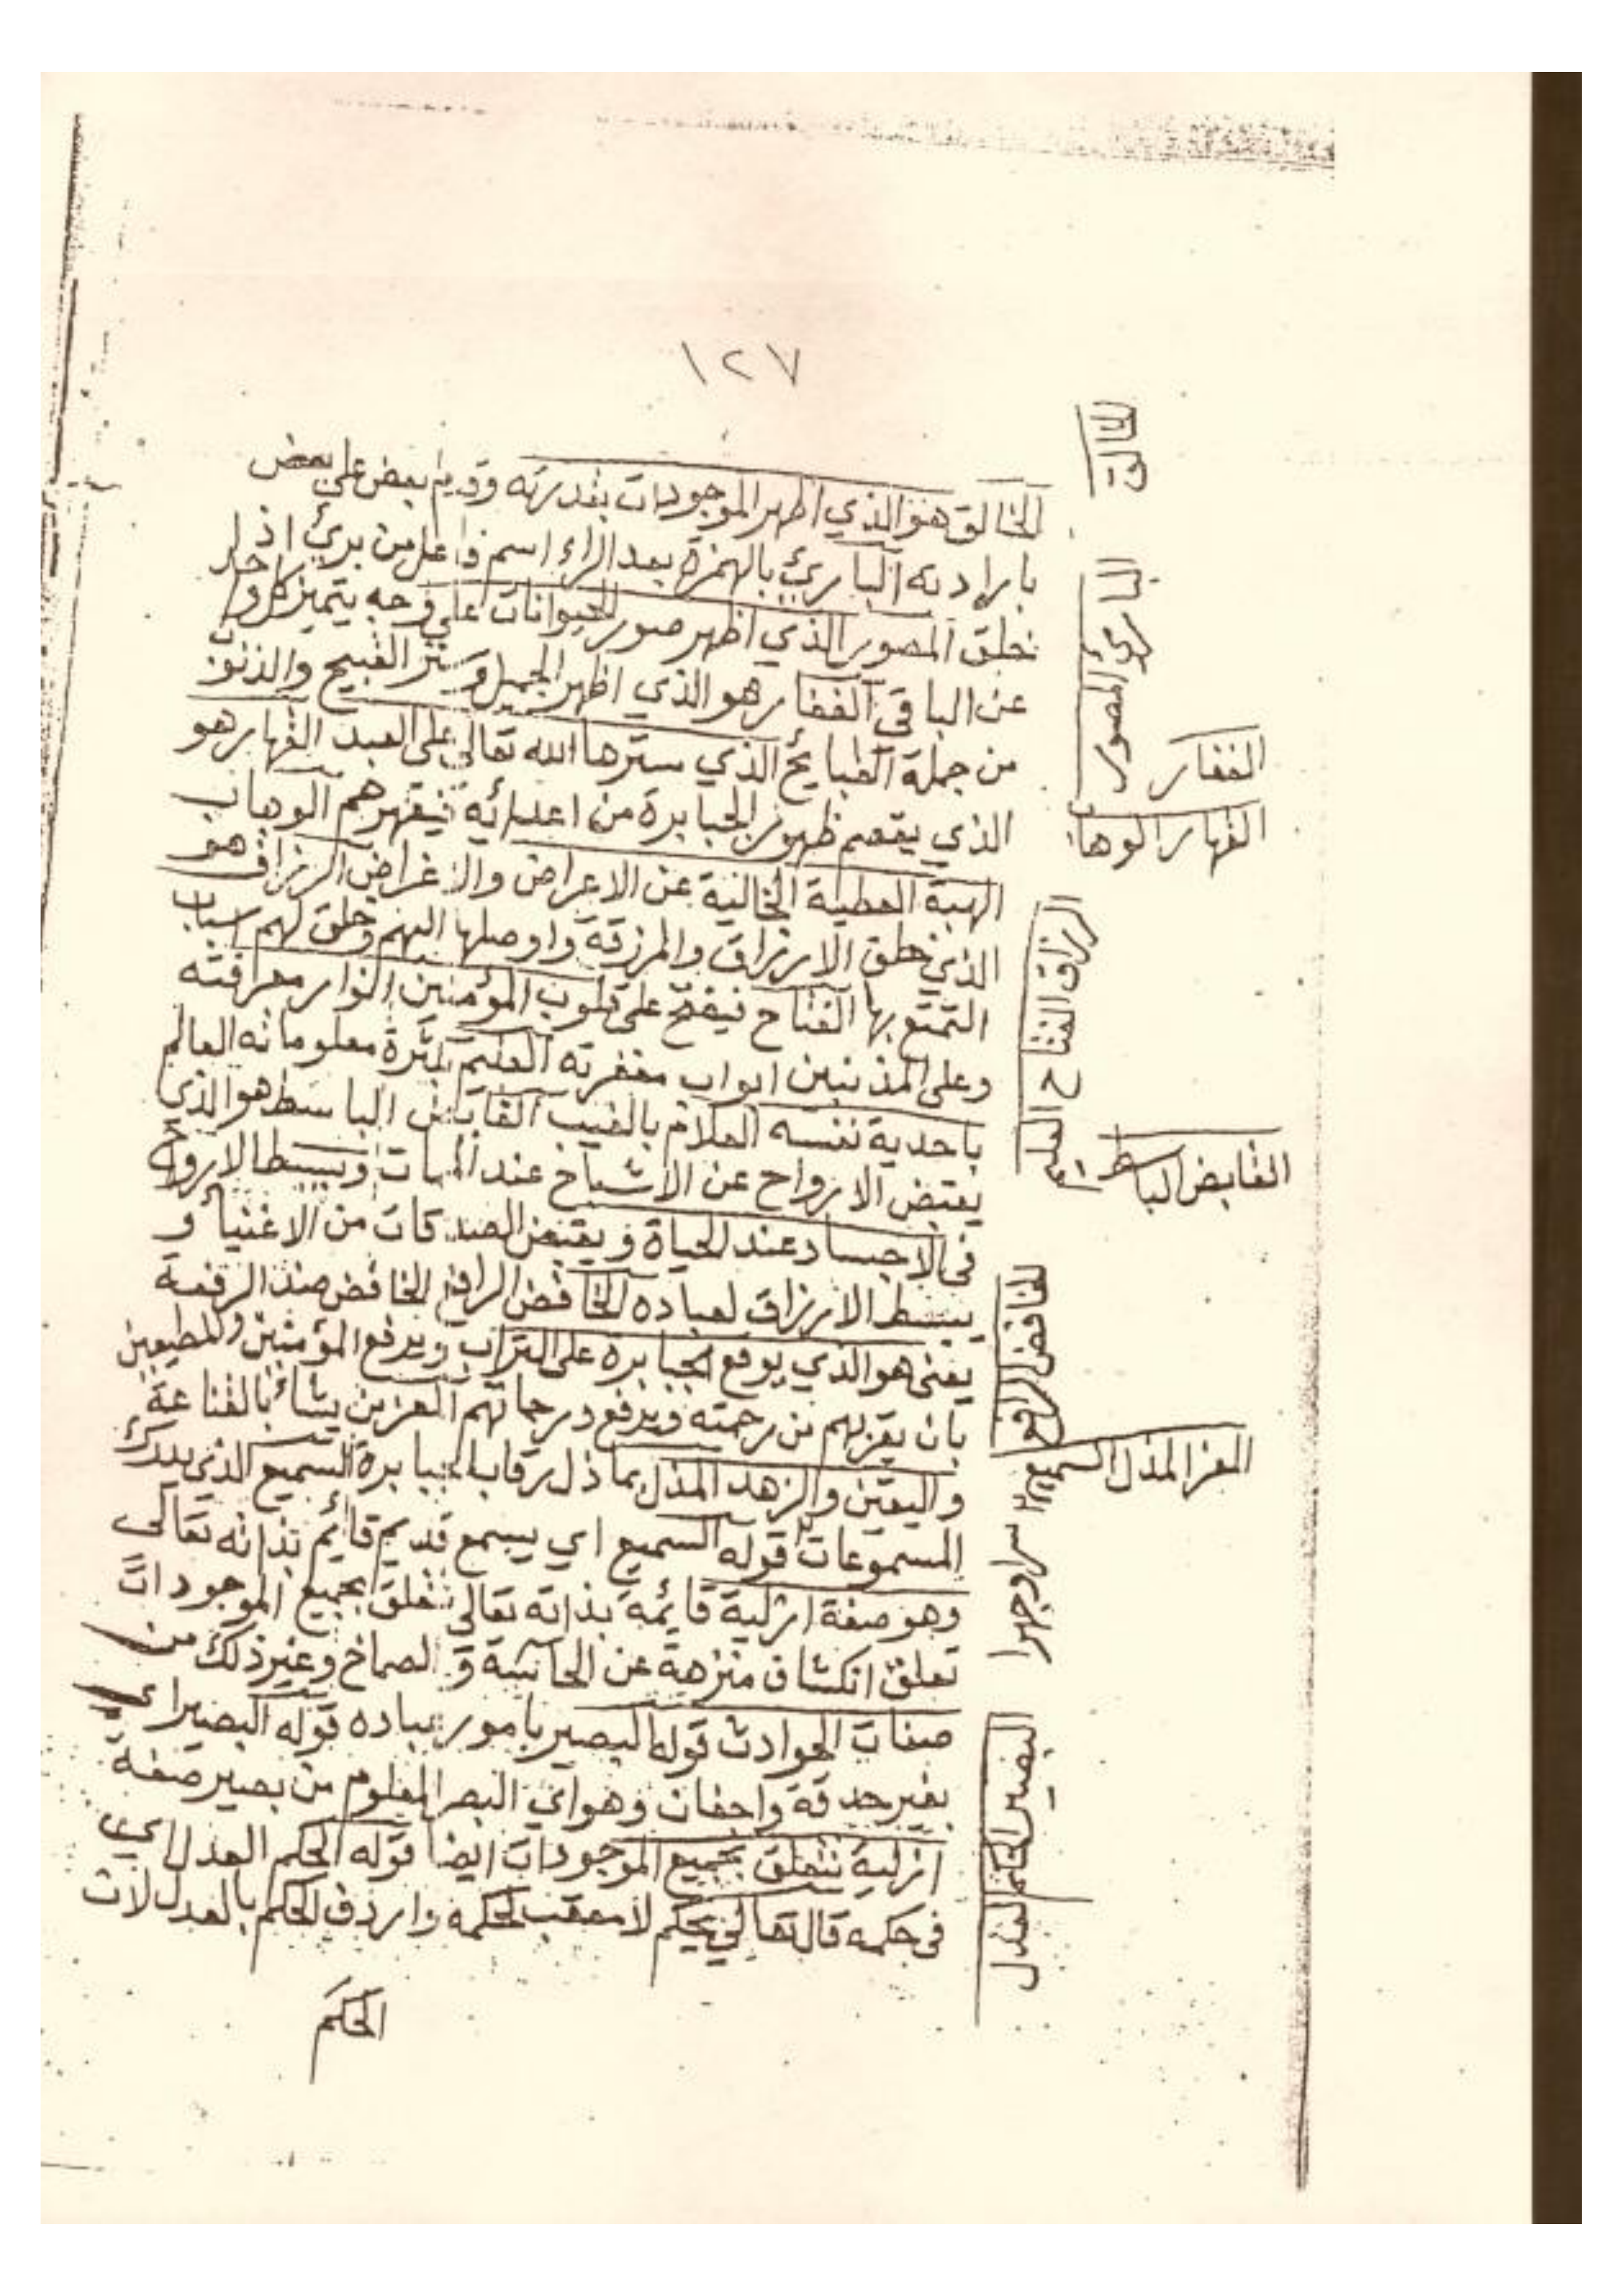 ١٢٧
الخالق هو الذي اظهر الموجودات بقدرته وقديم بعض على بعض
بارادته البارئ بالهمزة بعد الراء اسم فاعل من برئ اذا
خلق المصور الذي اظهر صور الحيوانات على وجه يتميز كل واحد
عن الباقي الغفار هو الذي اظهر الجميل وستر القبيح والذنوب
من جملة القبايح الذي سترها الله تعالى على العبد القهار هو
الذي يقصم ظهور الجبابرة من اعدائه فيقهرهم الوهاب
الهبة العطية الخالية عن الاعراض والاغراض الرزاق هو
الذي خلق الارزاق والمرزقة واوصلها اليهم وخلق لهم اسباب
التمتع بها الفتاح فيفتح على قلوب المؤمنين انوار معرافته
وعلى المذنبين ابواب مغفرته العليم بكثرة معلوماته العالم
باحدية نفسه العلام بالغيب القابض الباسط هو الذي
يقبض الارواح عن الاشباخ عند الممات ويبسط الارواح
في الاجساد عند الحياة ويقبض الصدقات من الاغنياء و
يبسط الارزاق لعباده الخافض الرافع الخافض ضد الرفعة
يعنى هو الذي يوقع الجبابرة على التراب ويرفع المؤمنين والمطيعين
بان يقربهم من رحمته ويرفع درجاتهم المعز من يشاء بالقناعة
واليقين والزهد المذل بما ذل رقاب الجبابرة السميع الذي يدرك
المسموعات قوله السميع اي يسمع قديم قائم بذاته تعالى
وهو صفة ازلية قائمة بذاته تعالى تتعلق بجميع الموجودات
تعلق انكشاف منزهة عن الحاسة و الصماخ وغير ذلك من
صفات الحوادث قوله البصير بامور عباده قوله البصير اي
بغير حدقة واجفان وهو اي البصر المعلوم من بصير صفة
ازلية تتعلق بجميع الموجودات ايضا قوله الحكم العدل اي
في حكمه قال تعالى يحكم لا معقب لحكمه واردف الحكم بالعدل لان
الحكم
الخالق
البارئ المصور
الغفار
القهار الوها
الرزاق الفتاح العليم
القابض الباسط
الخافض الرافع
المعز المذل السميع
سرا وجهرا
البصير الحكم العدل